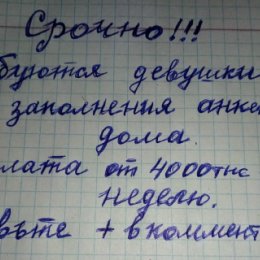 Срочно!!!
буются девушки
заполнения анке
дома.
лата от 4000тнг
неделю.
вьте + в коммент